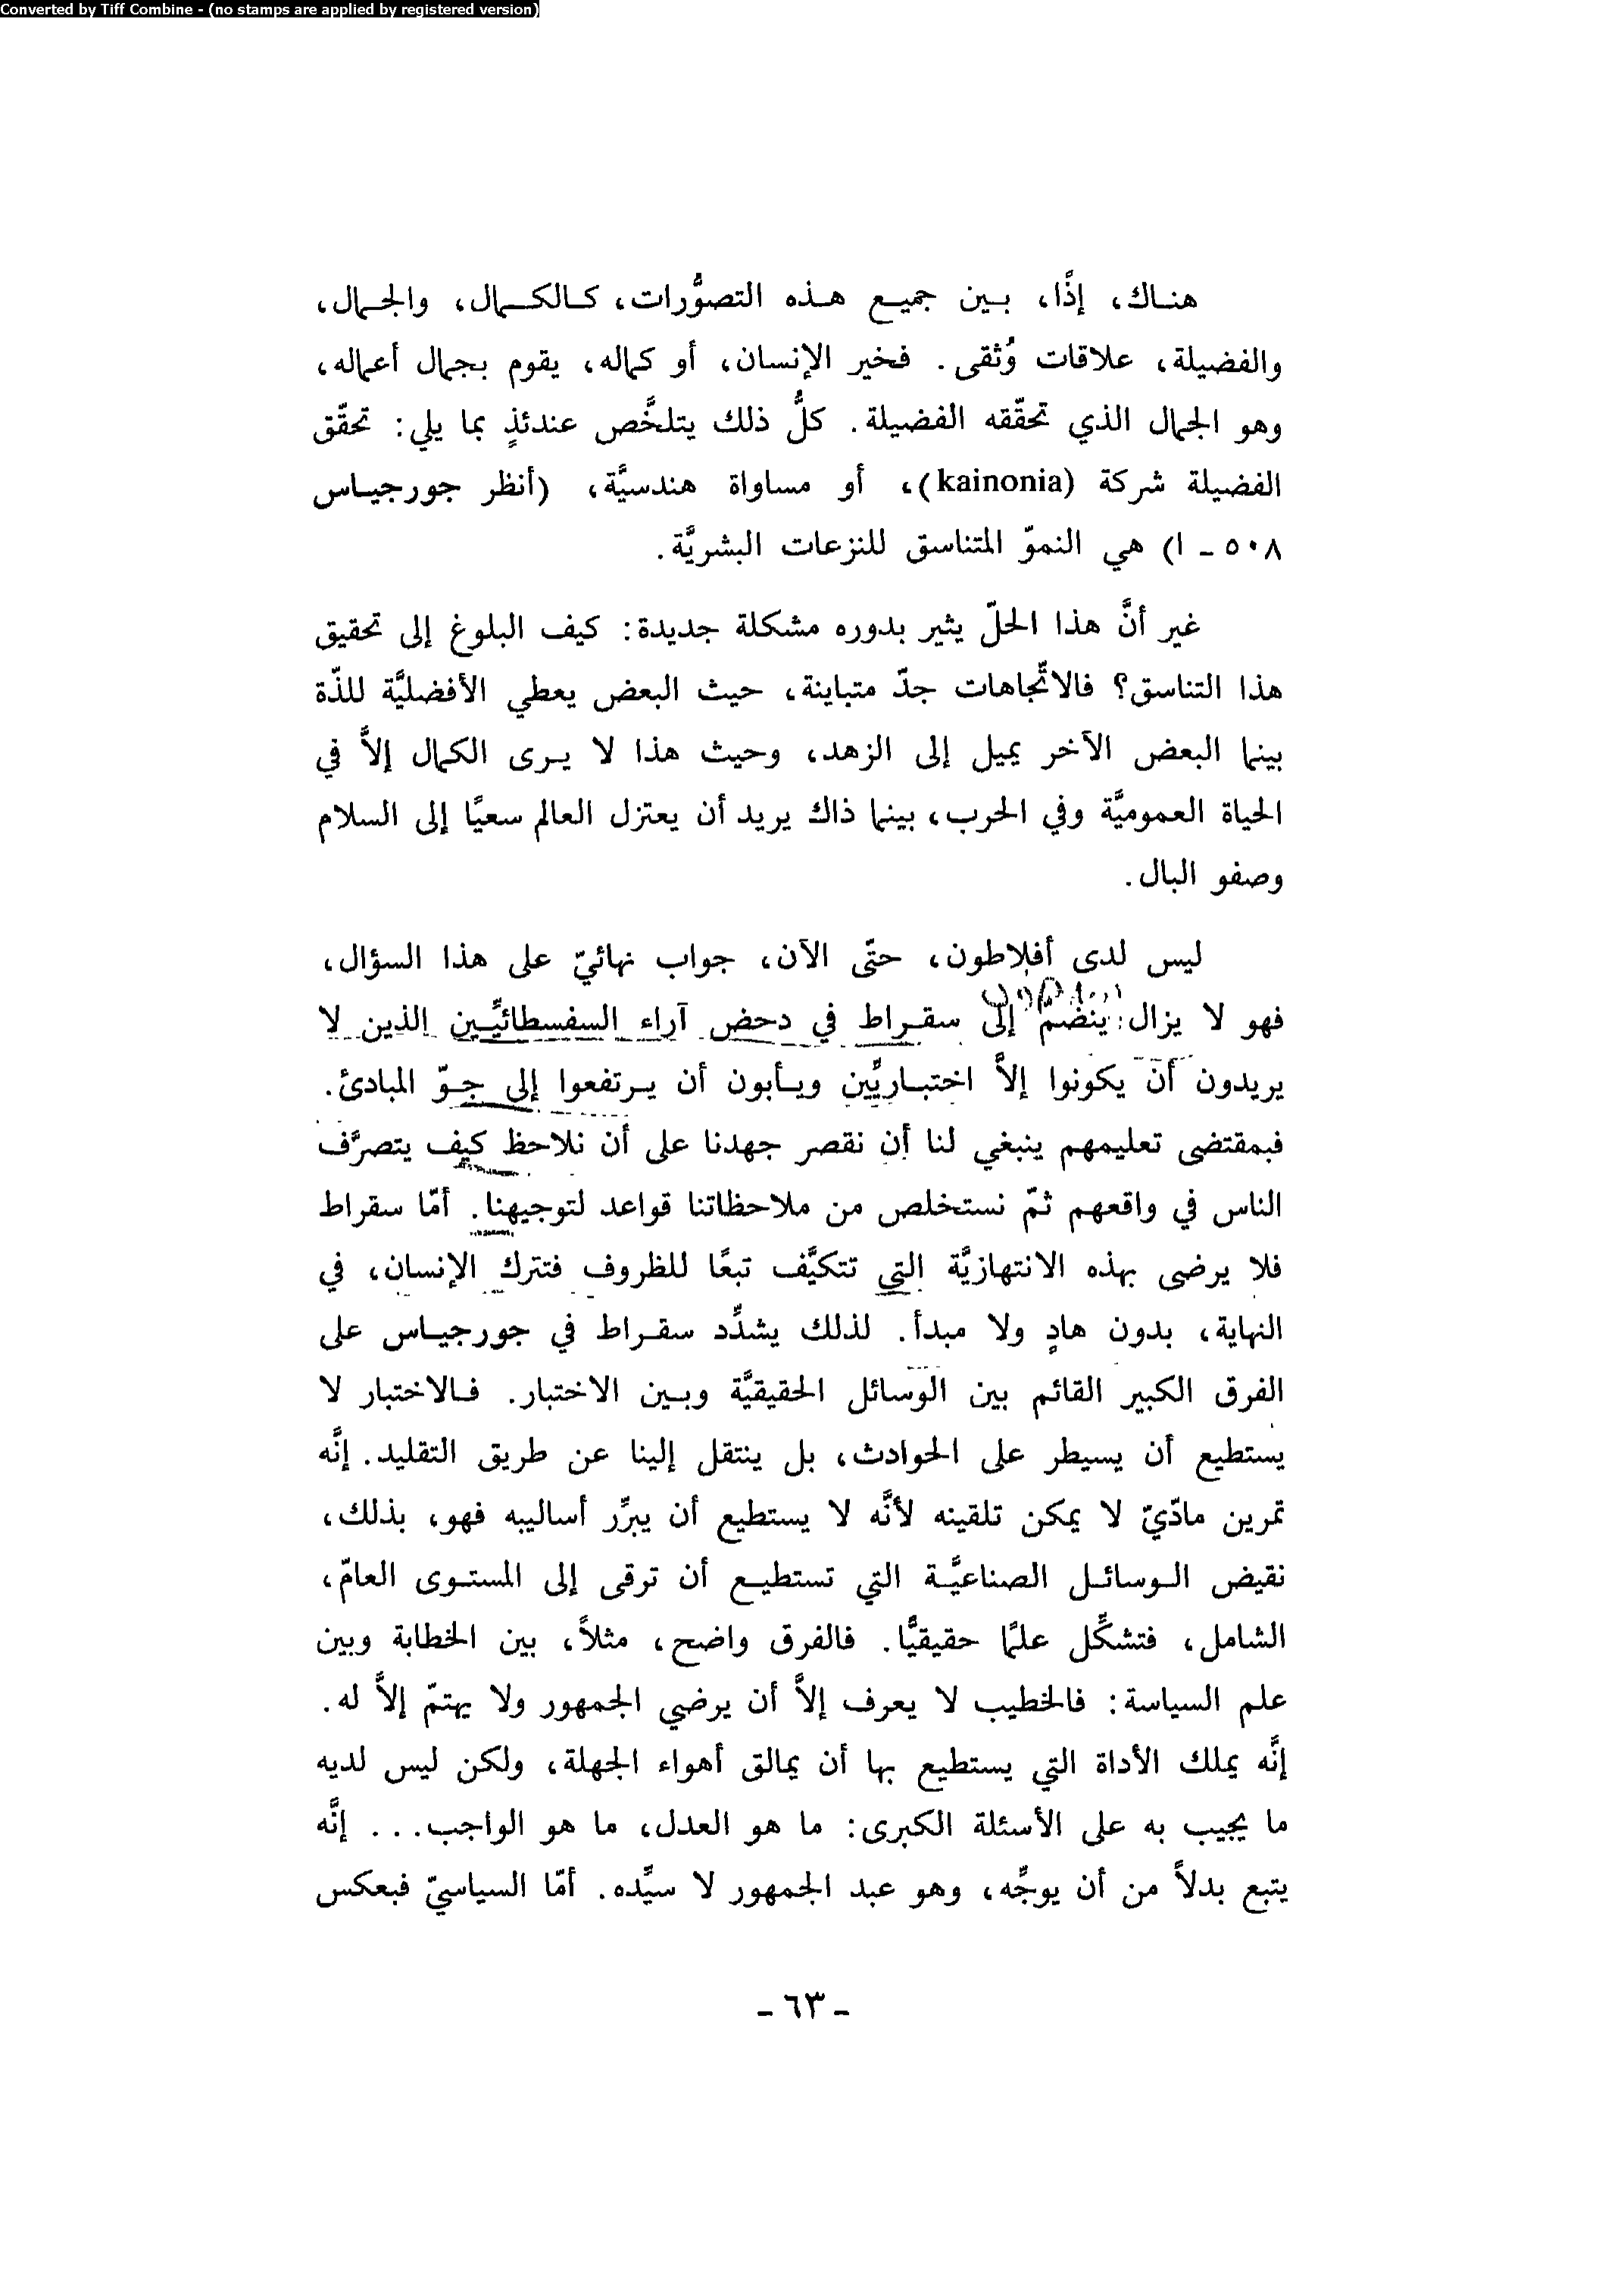 Converted by Tiff Combine - (no stamps are applied by registered version)
هناك، إذًا، بين جميع هذه التصوُّرات، كالكمال، والجمال،
والفضيلة، علاقات وُثقى. فخير الإنسان، أو كماله، يقوم بجمال أعماله،
وهو الجمال الذي تحقّقه الفضيلة. كلُّ ذلك يتلخَّص عندئذٍ بما يلي: تحقّق
الفضيلة شركة (kainonia)، أو مساواة هندسيَّة، (أنظر جورجياس
٥٠٨ - ا) هي النموّ المتناسق للنزعات البشريَّة.
غير أنَّ هذا الحلّ يثير بدوره مشكلة جديدة: كيف البلوغ إلى تحقيق
هذا التناسق؟ فالاتّجاهات جدّ متباينة، حيث البعض يعطي الأفضليَّة للذّة
بينما البعض الآخر يميل إلى الزهد، وحيث هذا لا يرى الكمال إلاَّ في
الحياة العموميَّة وفي الحرب، بينما ذاك يريد أن يعتزل العالم سعيًا إلى السلام
وصفو البال.
ليس لدى أفلاطون، حتّى الآن، جواب نهائيّ على هذا السؤال،
فهو لا يزال ينضمّ إلى سقراط في دحض آراء السفسطائيِّين الذين لا
يريدون أن يكونوا إلاَّ اختباريِّين ويأبون أن يرتفعوا إلى جوّ المبادئ.
فبمقتضى تعليمهم ينبغي لنا أن نقصر جهدنا على أن نلاحظ كيف يتصرَّف
الناس في واقعهم ثمّ نستخلص من ملاحظاتنا قواعد لتوجيهنا. أمّا سقراط
فلا يرضى بهذه الانتهازيَّة التي تتكيَّف تبعًا للظروف فتترك الإنسان، في
النهاية، بدون هادٍ ولا مبدأ. لذلك يشدِّد سقراط في جورجياس على
الفرق الكبير القائم بين الوسائل الحقيقيَّة وبين الاختبار. فالاختبار لا
يستطيع أن يسيطر على الحوادث، بل ينتقل إلينا عن طريق التقليد. إنَّه
تمرين مادّيّ لا يمكن تلقينه لأنَّه لا يستطيع أن يبرِّر أساليبه فهو، بذلك،
نقيض الوسائل الصناعيَّة التي تستطيع أن ترقى إلى المستوى العامّ،
الشامل، فتشكِّل علمًا حقيقيًّا. فالفرق واضح، مثلاً، بين الخطابة وبين
علم السياسة: فالخطيب لا يعرف إلاَّ أن يرضي الجمهور ولا يهتمّ إلاَّ له.
إنَّه يملك الأداة التي يستطيع بها أن يمالق أهواء الجهلة، ولكن ليس لديه
ما يجيب به على الأسئلة الكبرى: ما هو العدل، ما هو الواجب... إنَّه
يتبع بدلاً من أن يوجِّه، وهو عبد الجمهور لا سيِّده. أمّا السياسيّ فبعكس
- ٦٣ -